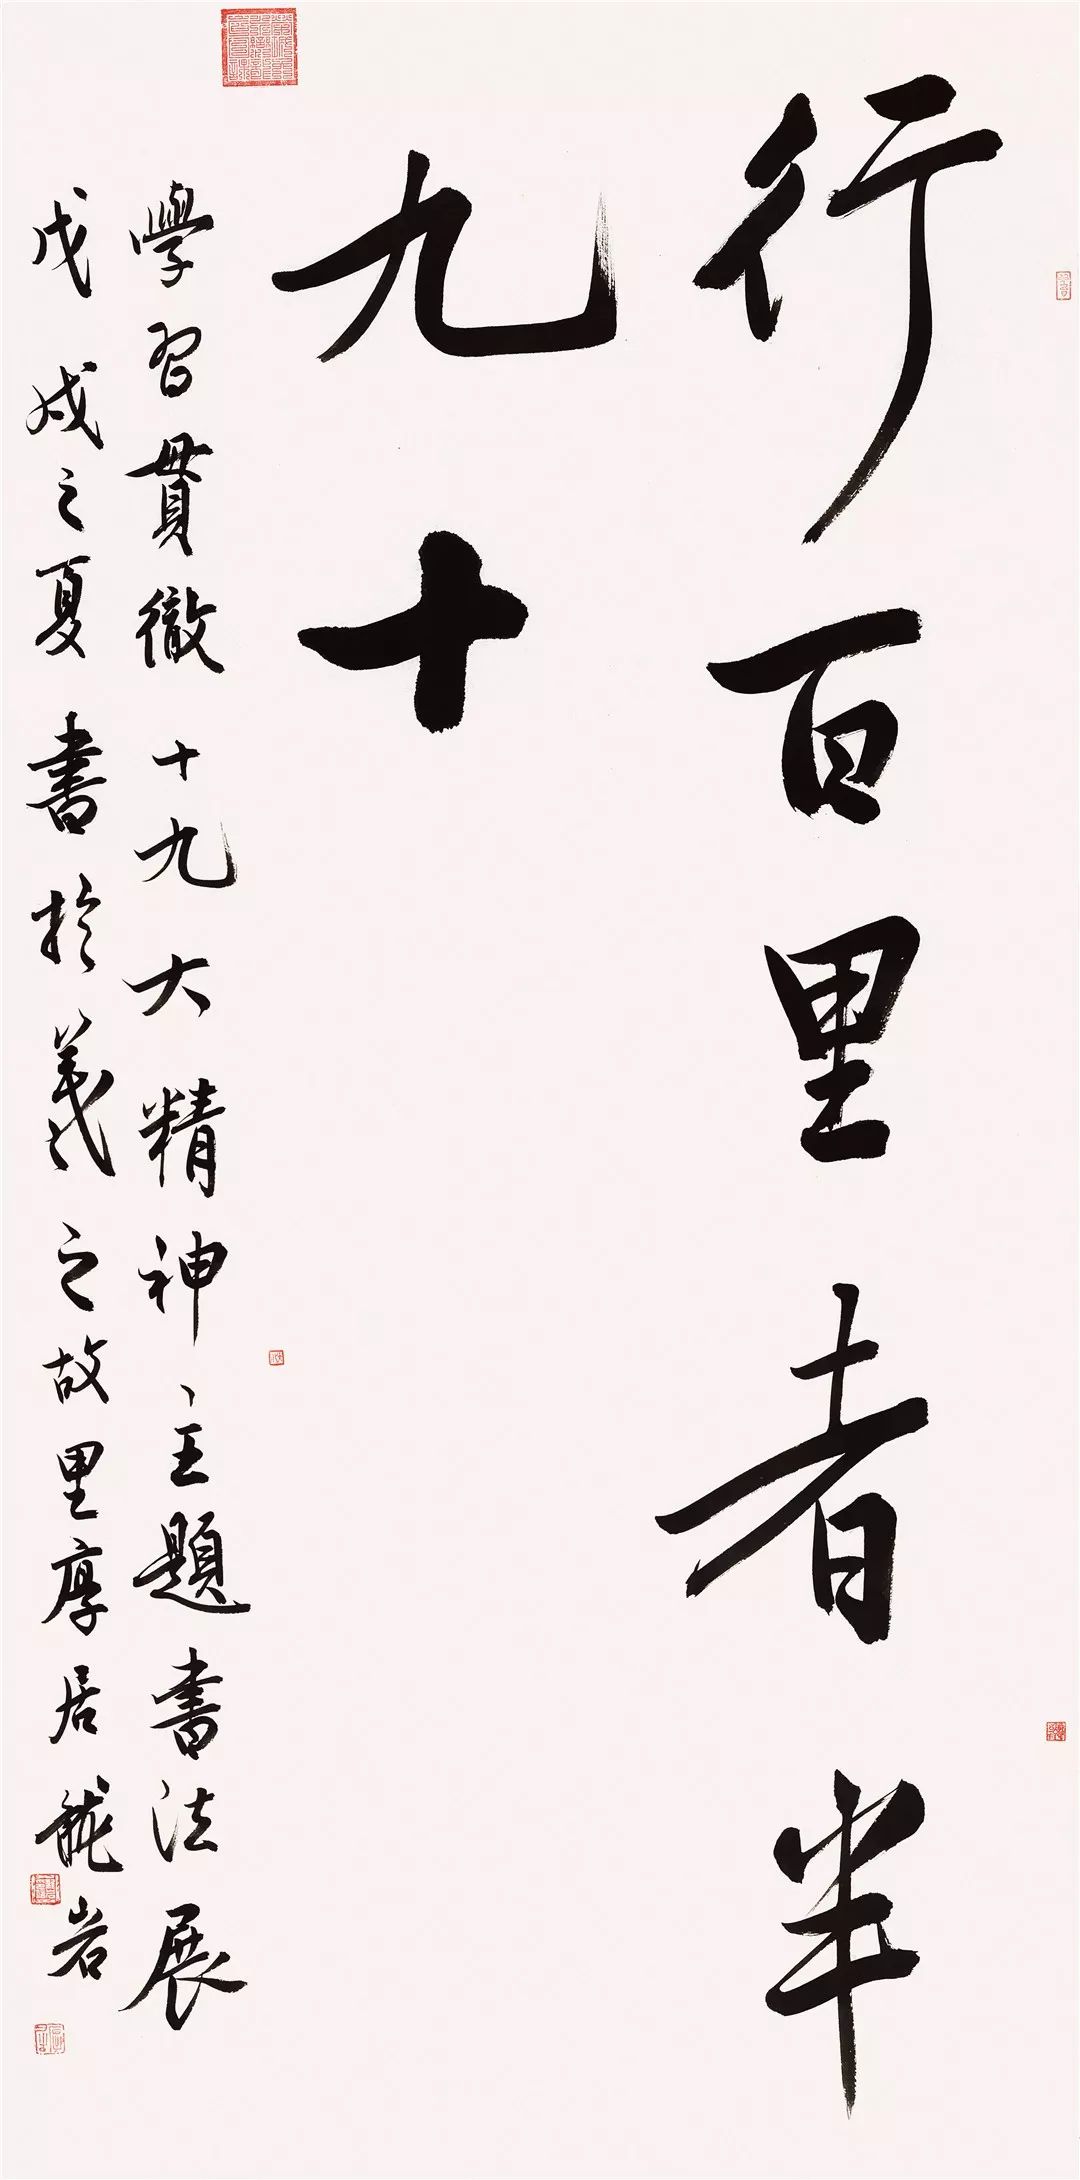 行百里者半
九十
學習貫徹十九大精神主題書法展
戊戌之夏書於羲之故里厚居龍岩